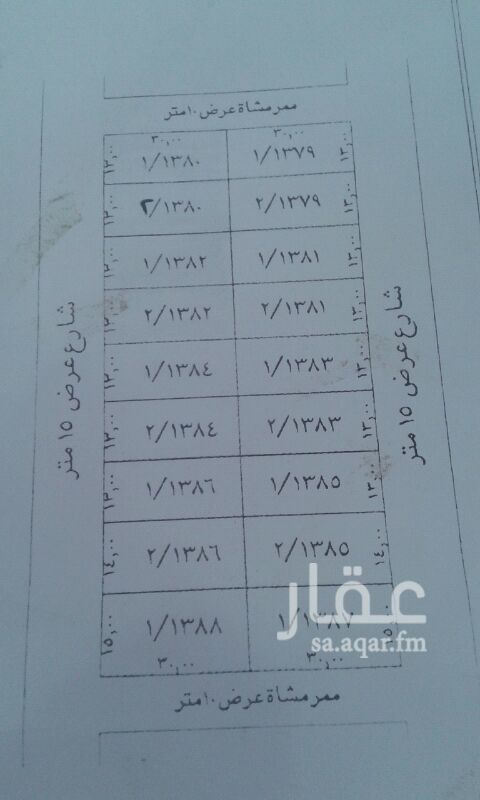 ممر مشاة عرض ١٠ متر
٣٠,٠٠ ٣٠,٠٠
١٣,٠٠ ١/١٣٨٠ ١/١٣٧٩ ١٣,٠٠
١٣,٠٠ ٢/١٣٨٠ ٢/١٣٧٩ ١٣,٠٠
١٣,٠٠ ١/١٣٨٢ ١/١٣٨١ ١٣,٠٠
١٣,٠٠ ٢/١٣٨٢ ٢/١٣٨١ ١٣,٠٠
١٣,٠٠ ١/١٣٨٤ ١/١٣٨٣ ١٣,٠٠
١٣,٠٠ ٢/١٣٨٤ ٢/١٣٨٣ ١٣,٠٠
١٣,٠٠ ١/١٣٨٦ ١/١٣٨٥ ١٣,٠٠
١٤,٠٠ ٢/١٣٨٦ ٢/١٣٨٥ ١٤,٠٠
١٥,٠٠ ١/١٣٨٨ ١/١٣٨٧
٣٠,٠٠ ٣٠,٠٠
ممر مشاة عرض ١٠ متر
شارع عرض ١٥ متر
شارع عرض ١٥ متر
عقار
sa.aqar.fm